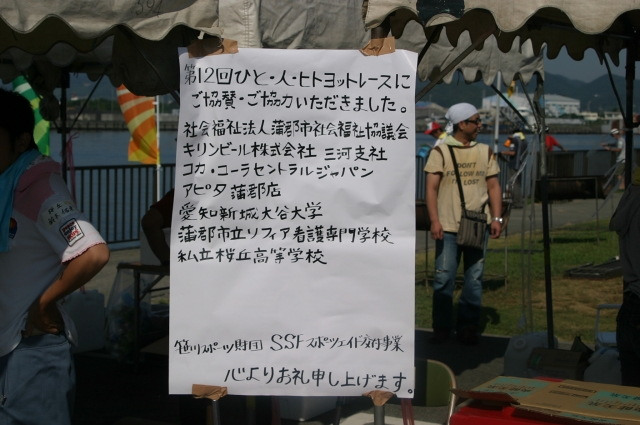 第12回ひと・人・ヒトヨットレースに
ご協賛・ご協力いただきました。
社会福祉法人蒲郡市社会福祉協議会
キリンビール株式会社 三河支社
コカ・コーラセントラルジャパン
アピタ蒲郡店
愛知新城大谷大学
蒲郡市立ソフィア看護専門学校
私立桜丘高等学校
笹川スポーツ財団 SSFスポーツエイド交付事業
心よりお礼申し上げます。
DON'T
FOLLOW ME
I'M LOST